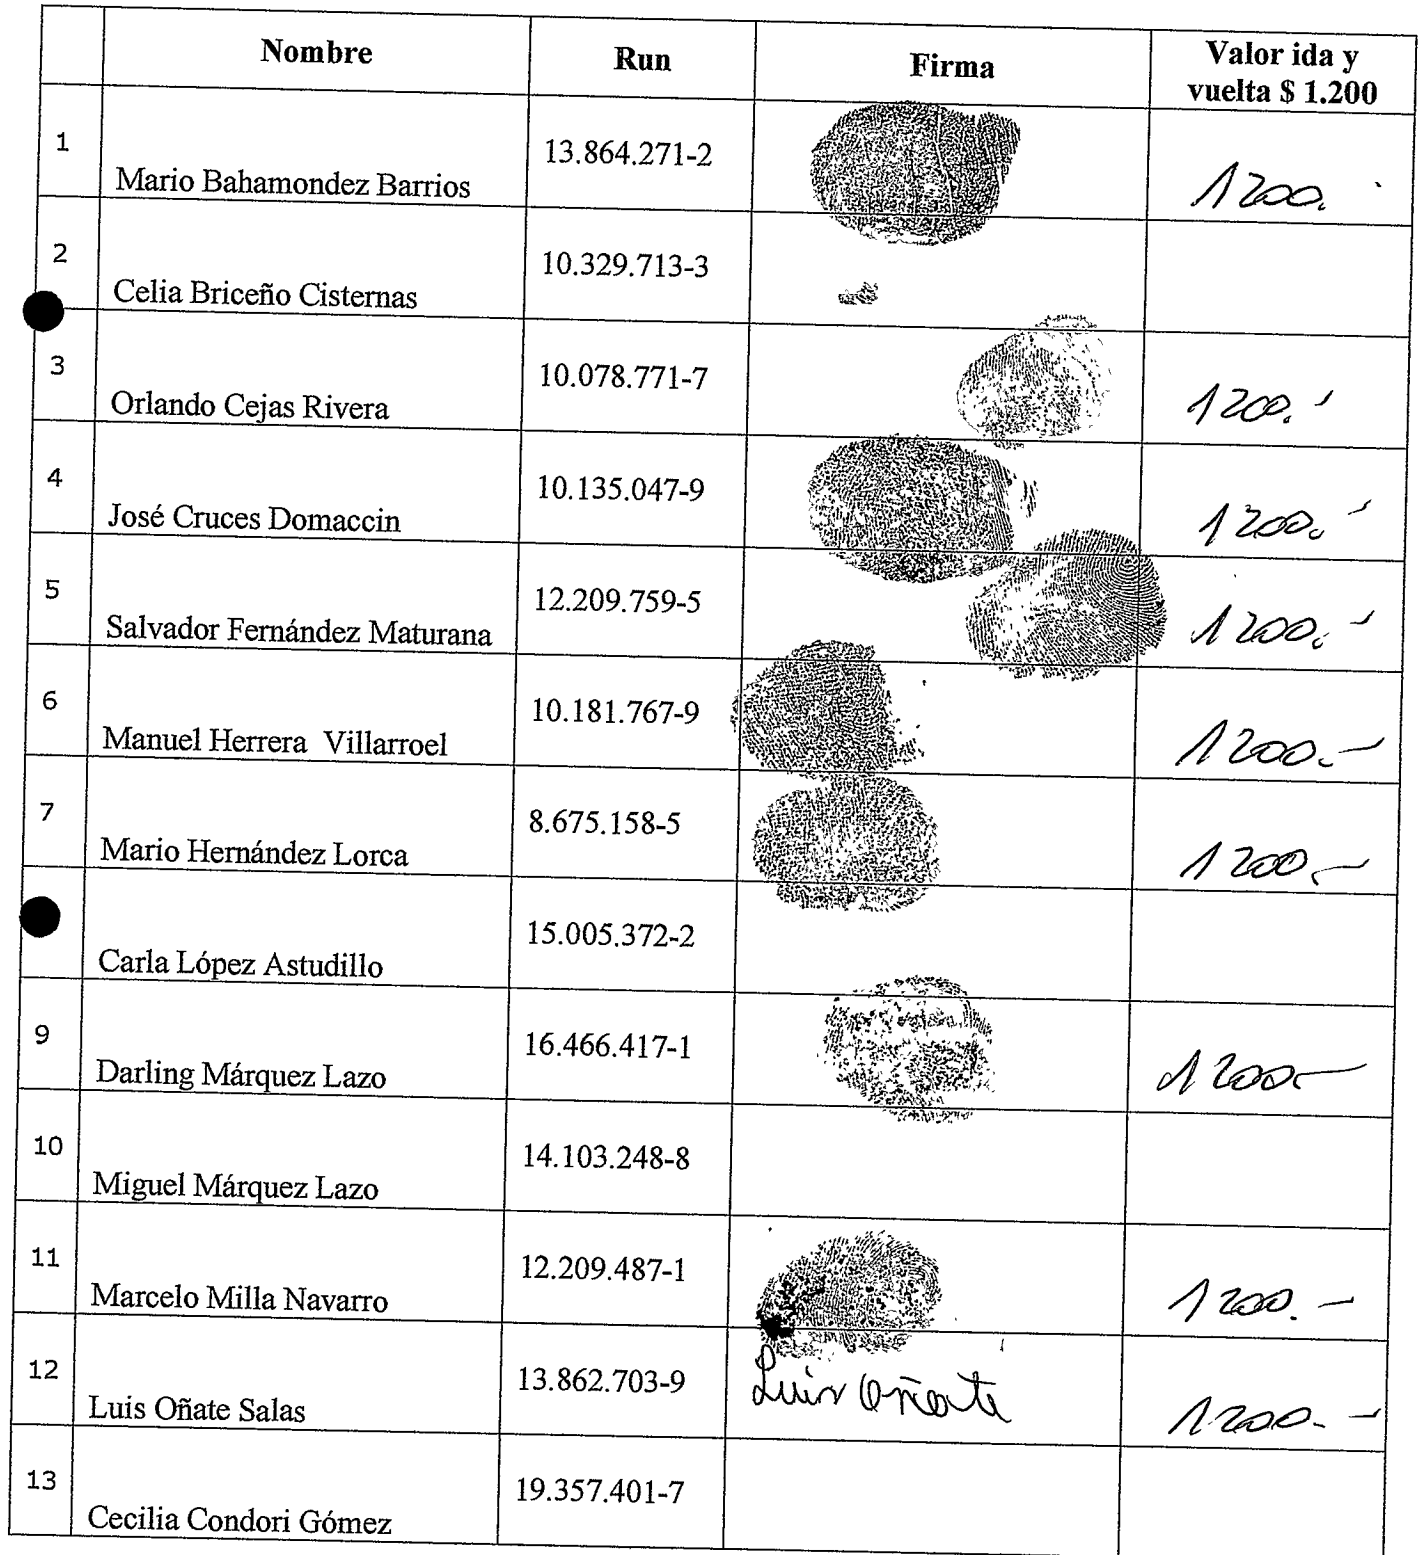 Nombre Run Firma Valor ida y
vuelta $ 1.200
1 Mario Bahamondez Barrios 13.864.271-2 1200.
2 Celia Briceño Cisternas 10.329.713-3
3 Orlando Cejas Rivera 10.078.771-7 1200.-
4 José Cruces Domaccin 10.135.047-9 1200.-
5 Salvador Fernández Maturana 12.209.759-5 1200.-
6 Manuel Herrera Villarroel 10.181.767-9 1200.-
7 Mario Hernández Lorca 8.675.158-5 1200.-
Carla López Astudillo 15.005.372-2
9 Darling Márquez Lazo 16.466.417-1 1200.-
10 Miguel Márquez Lazo 14.103.248-8
11 Marcelo Milla Navarro 12.209.487-1 1200.-
12 Luis Oñate Salas 13.862.703-9 Luis Oñate 1200.-
13 Cecilia Condori Gómez 19.357.401-7